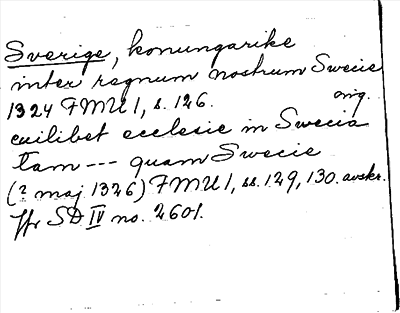 Sverige, konungarike
inter regnum nostrum Swecie
1324 FMU 1, s. 126. orig.
cuilibet ecclesie in Swecia
tam --- quam Swecie
(? maj 1326) FMU 1, ss. 129, 130. avskr.
Jfr SD IV no. 2601.